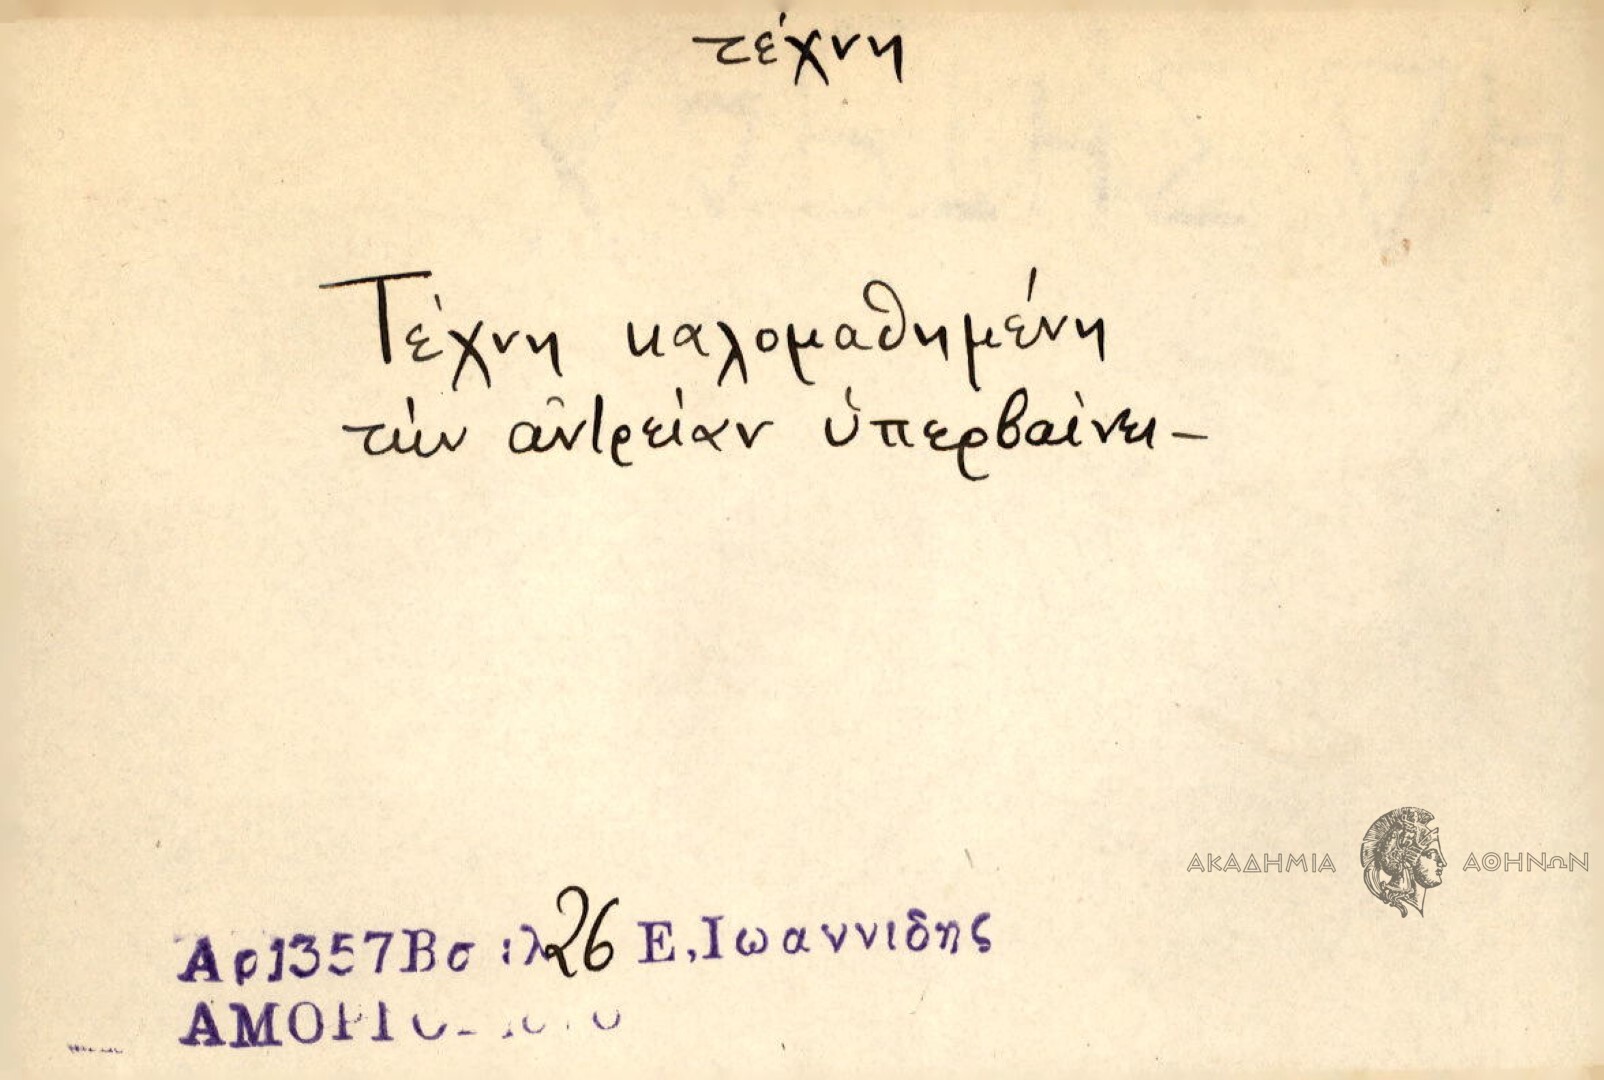 τέχνη
Τέχνη καλομαθημένη
τὴν ἀντρείαν ὑπερβαίνει –
ΑΚΑΔΗΜΙΑ ΑΘΗΝΩΝ
Αρ1357Β σελ 26 Ε.Ιωαννιδης